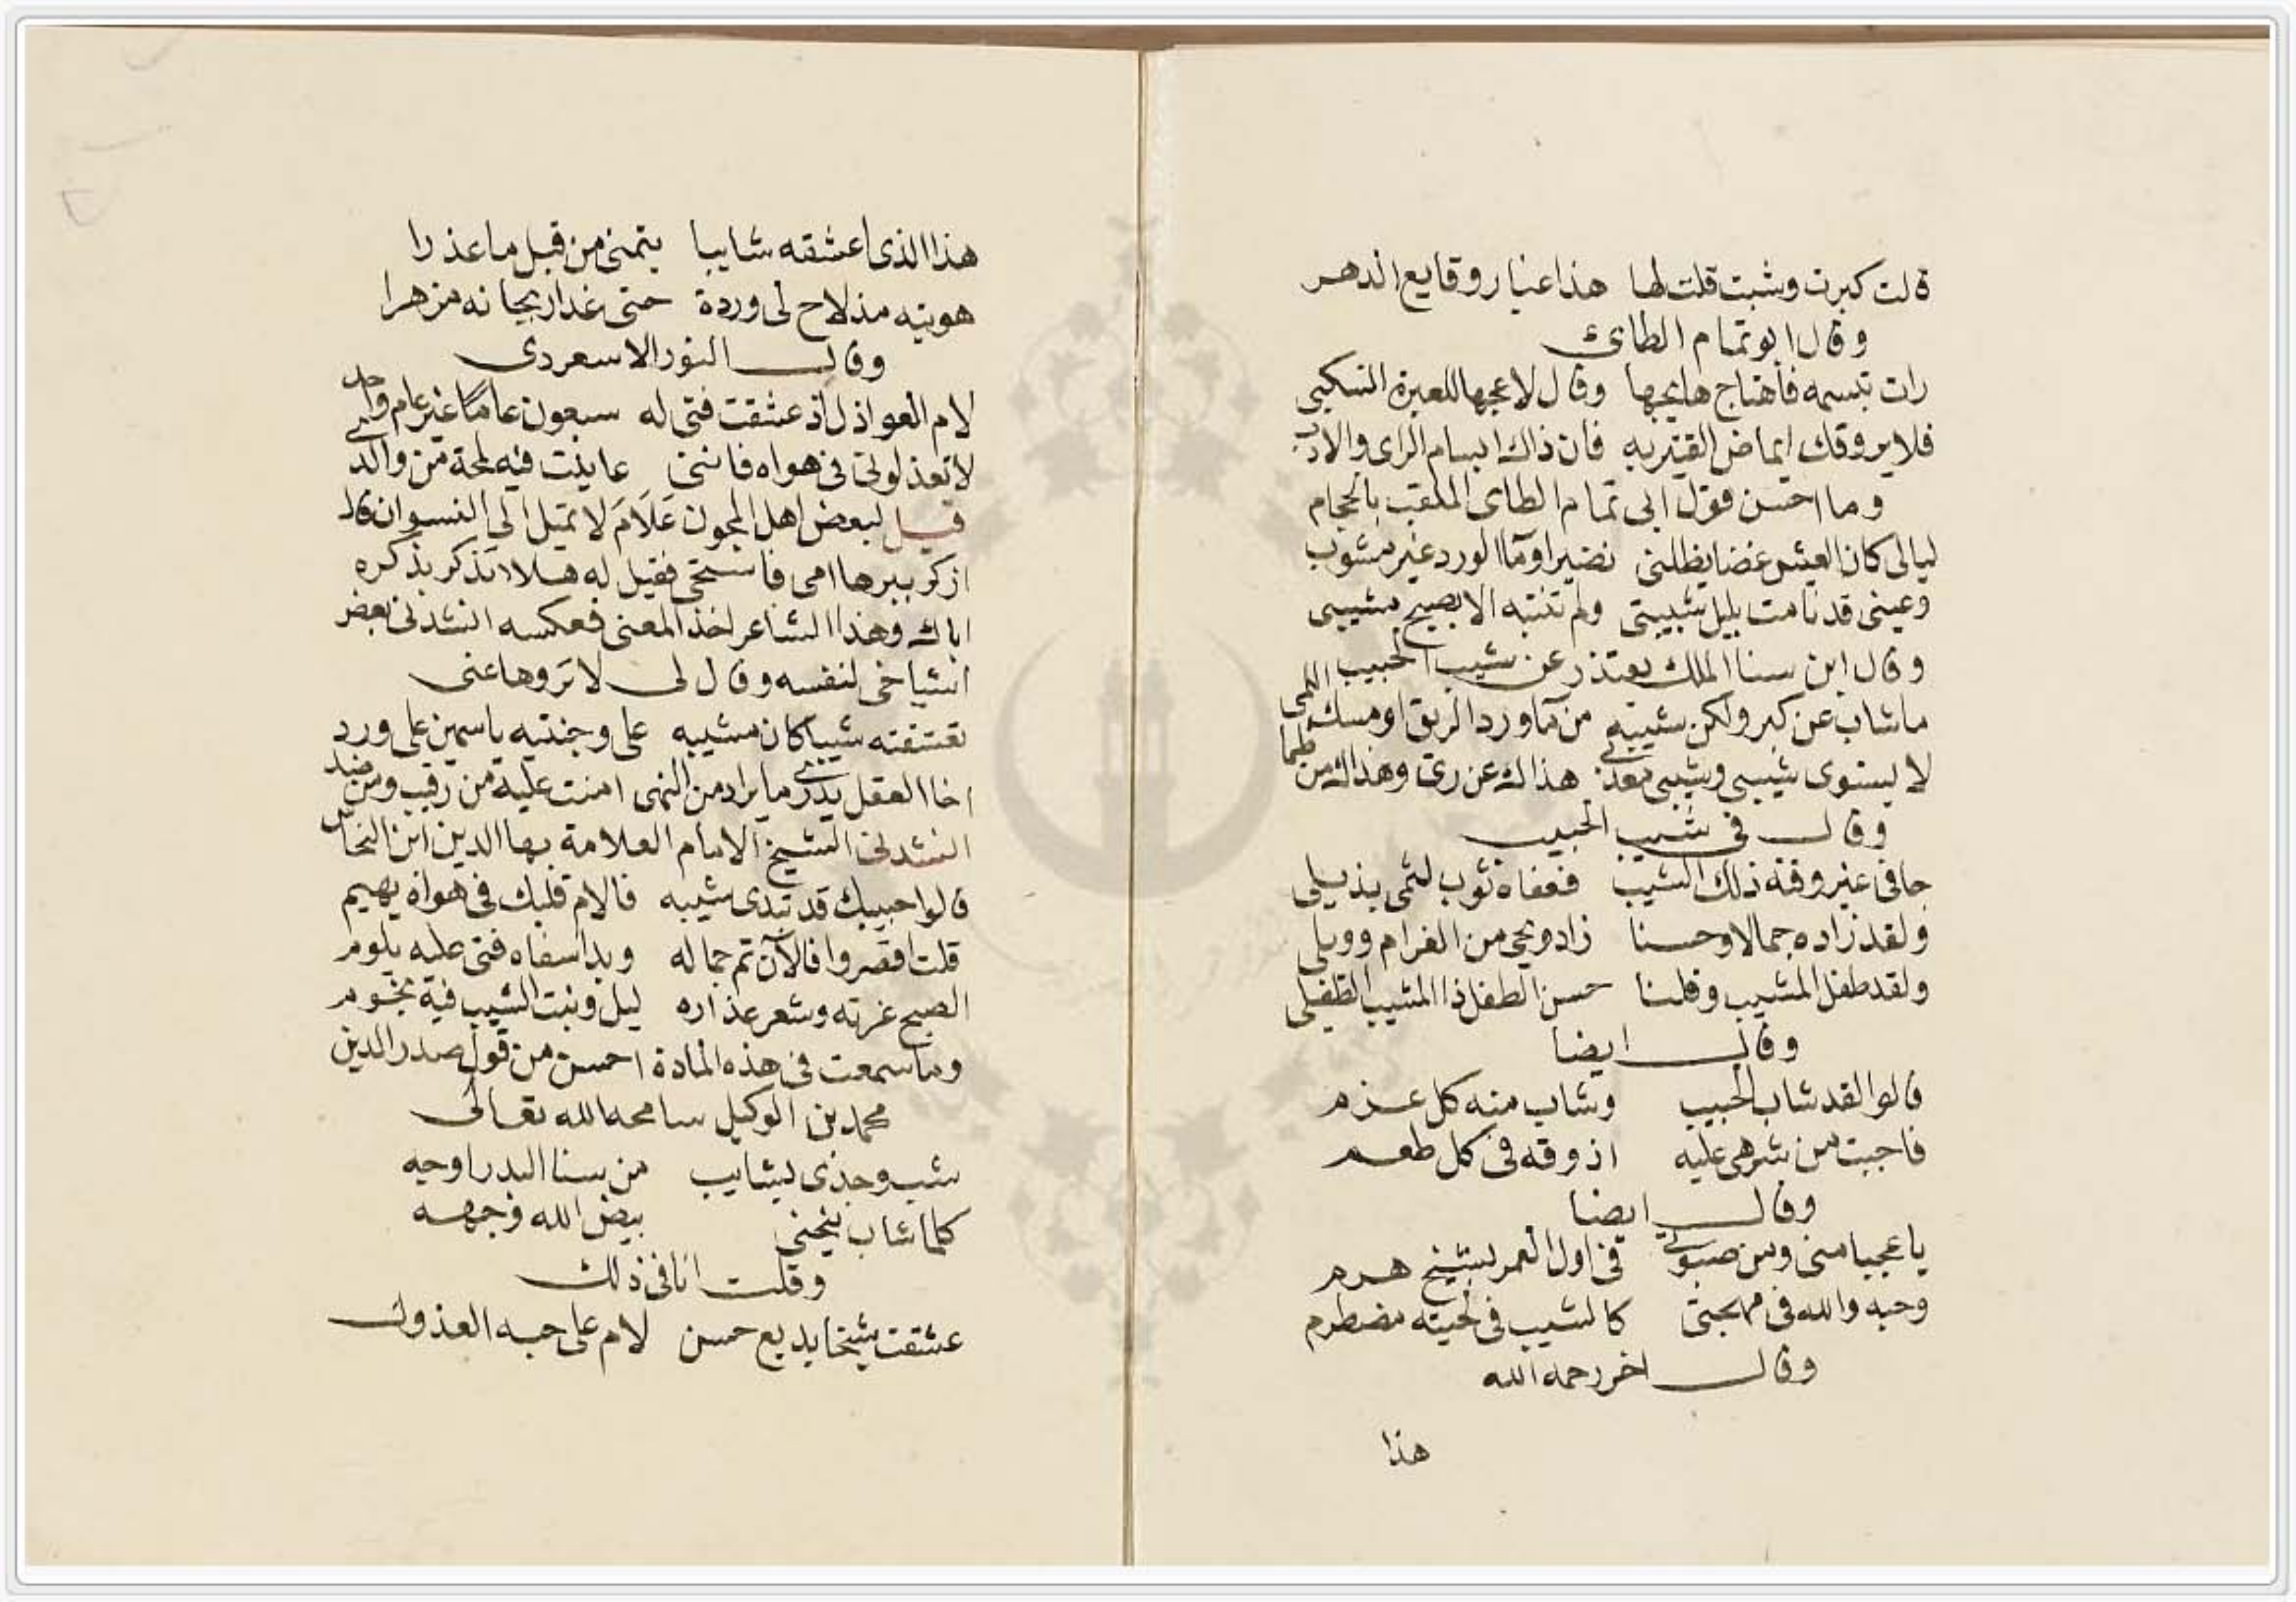 قالت كبرت وشبت قلت لها هذا غبار وقايع الدهر
وقال ابو تمام الطائى
رات تبسمه فاهتاج هايجها وقال لاعجها للعبرة انسكبى
فلا يروقك ايماض القتير به فان ذاك ابتسام الراى والادب
وما احسن قول ابى تمام الطاى الملقب بالحجام
ليالى كان العيش غضا يظلنى نضيرا وماا لورد غير مشوب
وعينى قد نامت بليل شبيبتى ولم تنتبه الا بصبح مشيبى
وقال ابن سنا الملك يعتذر عن شيب الحبيب
ما شاب عن كبر ولكن شيبته من ماورد الريق او مسك اللمى
لا يستوى شيبى وشيب معذبى هذاك عن رى وهذا من ظما
وقال فى شيب الحبيب
جافى غير وقته ذلك الشيب فعفاه ثوب لثمى بذيلى
ولقد زاده جمالا وحسنا زاد ويحى من الغرام وويلى
ولقد طفل المشيب وقلنا حسن الطفل ذا المشيب الطفيلى
وقال ايضا
قالوا لقد شاب الحبيب وشاب منه كل عزم
فاجبت من شرهى عليه اذوقه فى كل طعم
وقال ايضا
يا عجبا منى ومن صبوتى فى اول العمر لشيخ هرم
وحبه والله فى مهجتى كالشيب فى لحيته مضطرم
وقال اخر رحمه الله
هذا
هذا الذى اعشقه شايبا يتمنى من قبل ما عذرا
هويته مذ لاح لى وردة حتى غدا ريحانه مزهرا
وقال النور الاسعردى
لام العواذل اذ عشقت فتى له سبعون عامًا غير عام واحد
لا تعذلونى فى هواه فاننى عاينت فيه لمحة من والدى
قيل لبعض اهل المجون علام لا تميل الى النسوان قال
اذكر ببرها امى فاستحى فقيل له هلا تذكر بذكره
اباك وهذا الشاعر اخذ المعنى فعكسه انشدنى بعض
اشياخى لنفسه وقال لى لا تروها عنى
تعشقته شيبا كان مشيبه على وجنتيه ياسمين على ورد
اخا العقل يدرى ما يراد من النهى امنت عليه من رقيب ومن ضد
انشدنى الشيخ الامام العلامة بها الدين ابن النحاس
قالوا حبيبك قد تبدى شيبه فالام قلبك فى هواه يهيم
قلت اقصروا فالآن تم جماله وبدا سفاه فتى عليه يلوم
الصبح غرته وشعر عذاره ليل ونبت الشيب فيه نجوم
وما سمعت فى هذه المادة احسن من قول صدر الدين
محمد بن الوكيل سامحه الله تعالى
شب وجدى بشايب من سنا البدر اوجه
كلما شاب ينحنى بيض الله وجهه
وقلت انا فى ذلك
عشقت شيخا بديع حسن لام على حبه العذول